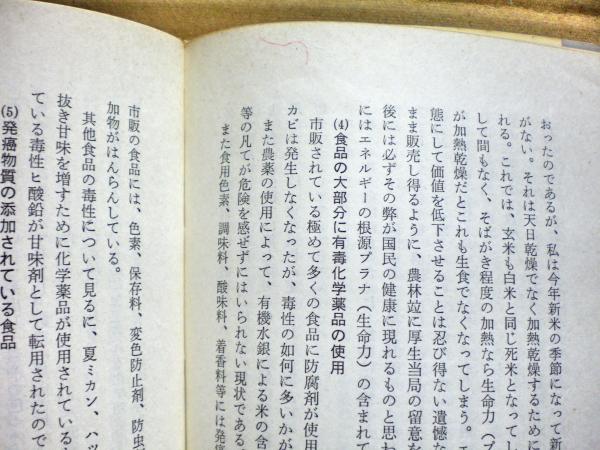 おったのであるが、私は今年新米の季節になって新
がない。それは天日乾燥でなく加熱乾燥するために
れる。これでは、玄米も白米と同じ死米となってし
して間もなく、そばがき程度の加熱なら生命力(プ
が加熱乾燥だとこれも生食でなくなってしまう。
態にして価値を低下させることは忍び得ない遺憾な
まま販売し得るように、農林竝に厚生当局の留意を
後には必ずその弊が国民の健康に現れるものと思わ
にはエネルギーの根源プラナ(生命力)の含まれて
(4)食品の大部分に有毒化学薬品の使用
市販されている極めて多くの食品に防腐剤が使用
カビは発生しなくなったが、毒性の如何に多いかが
また農薬の使用によって、有機水銀による米の含
等の凡てが危険を感ぜずにはいられない現状である
また食用色素、調味料、酸味料、着香料等には発癌
市販の食品には、色素、保存料、変色防止剤、防虫
加物がはんらんしている。
其他食品の毒性について見るに、夏ミカン、ハツ
抜き甘味を増すために化学薬品が使用されている
ている毒性ヒ酸鉛が甘味剤として転用されたので
(5)発癌物質の添加されている食品